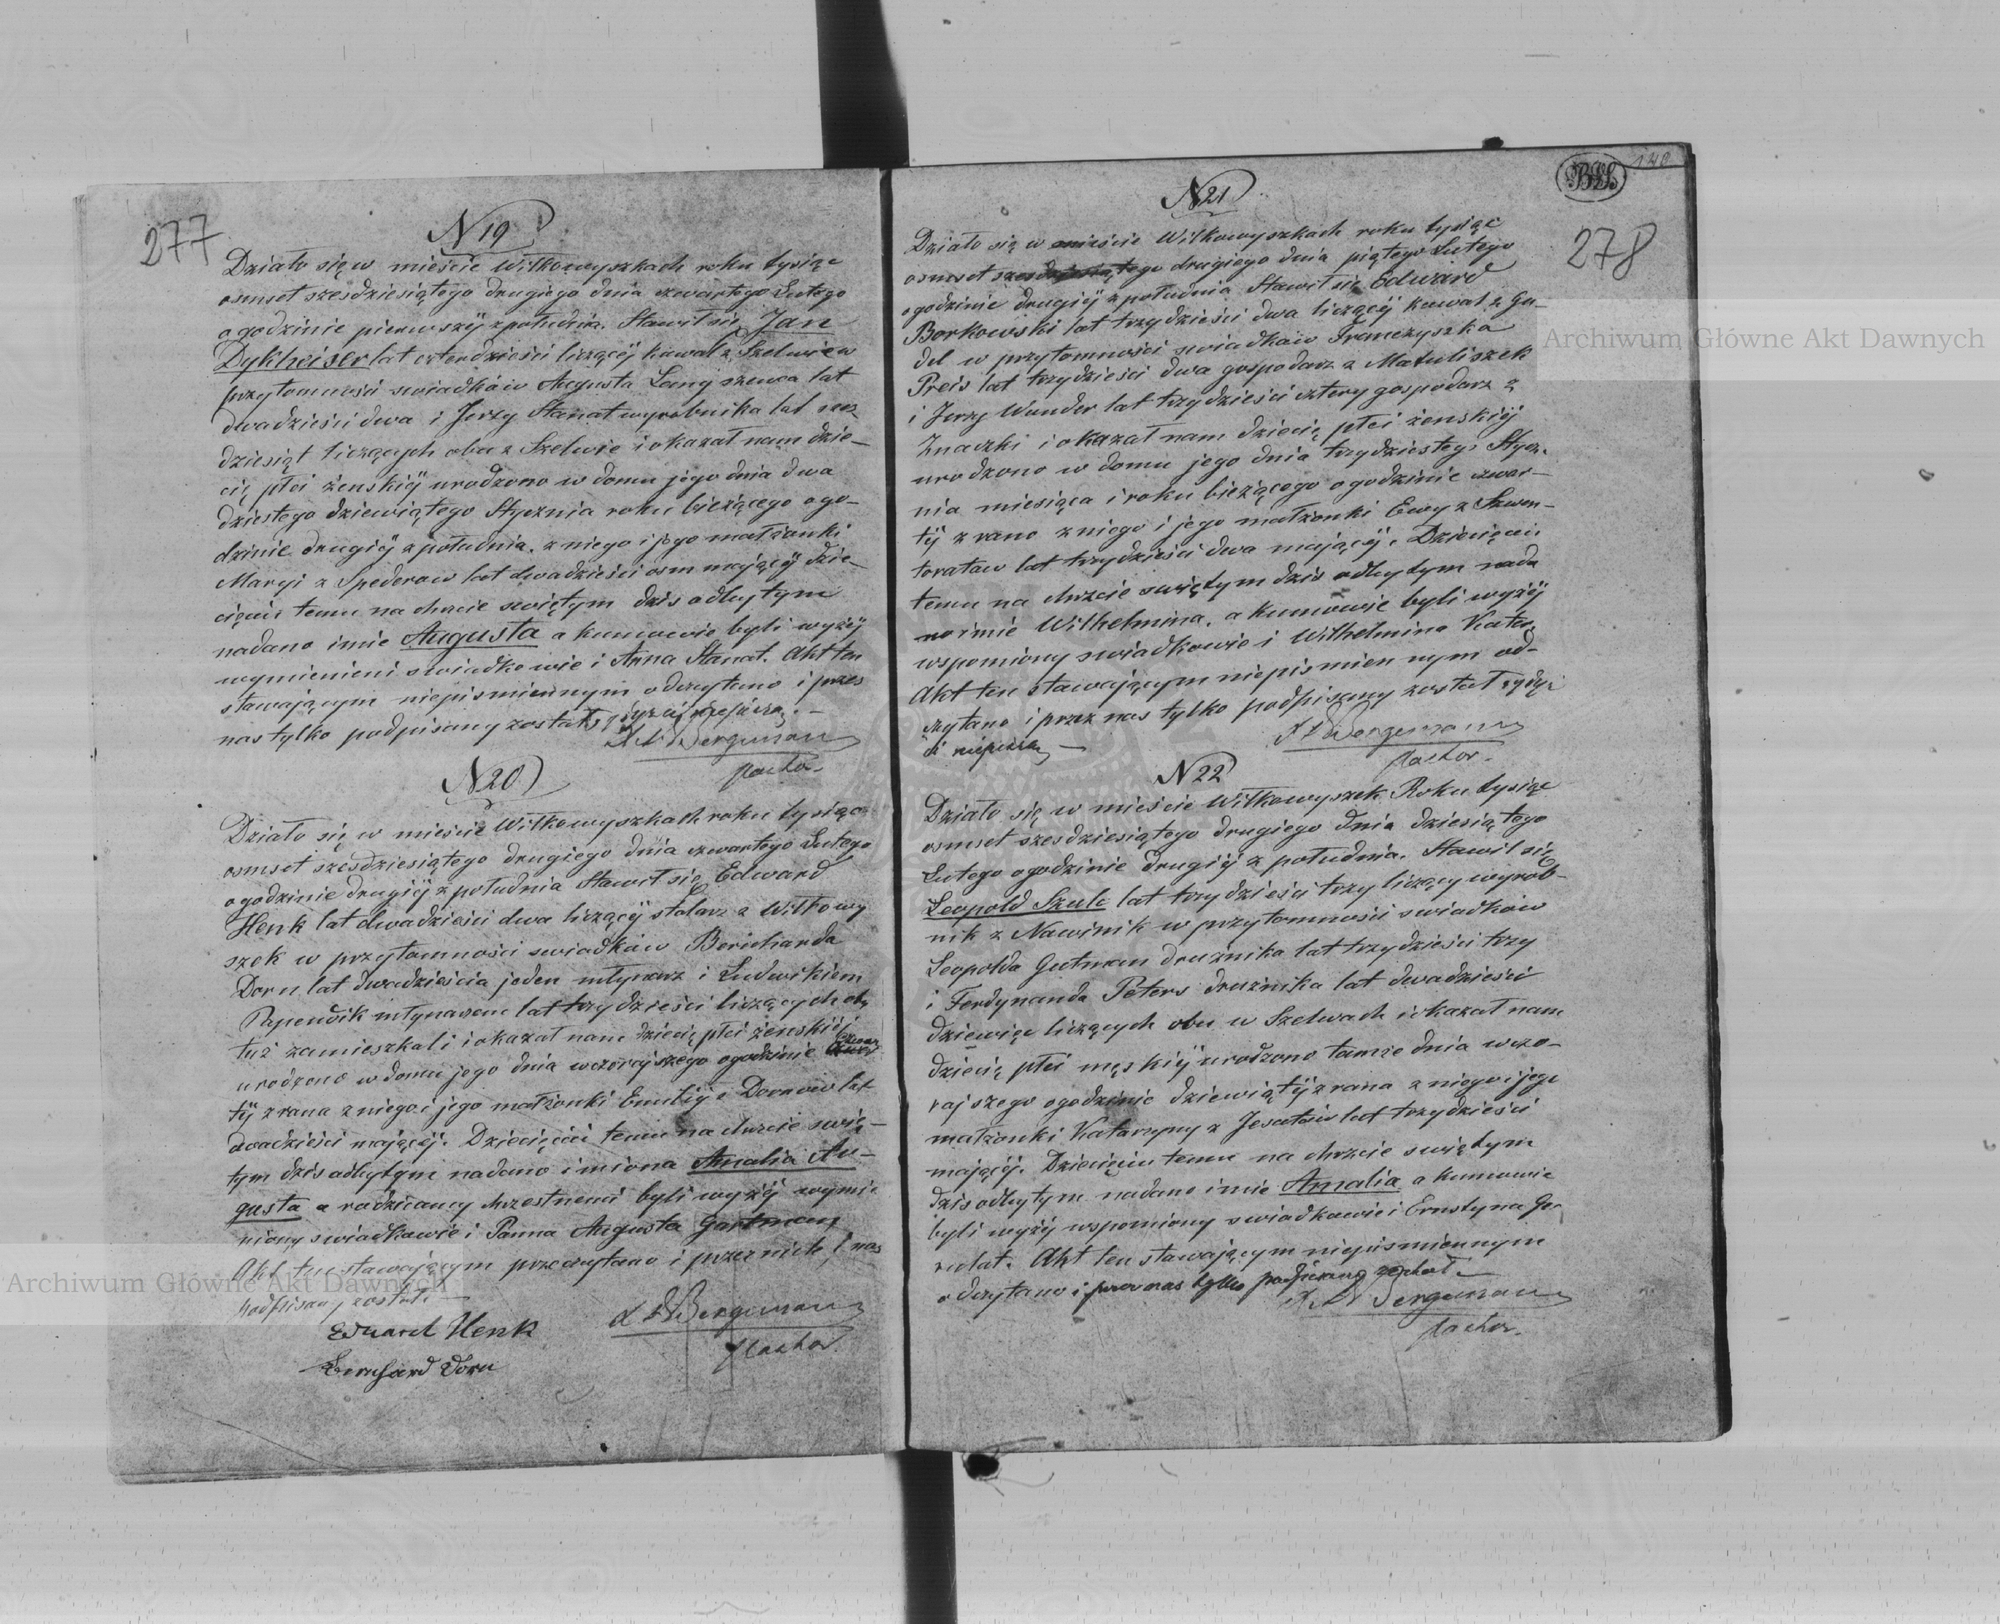 277
N 19
Działo się w mieście Wiłkowyszkach roku tysiąc
osmset szesdziesiątego drugiego dnia czwartego Lutego
o godzinie pierwszéj z południa. Stawił się Jan
Dykheiser lat czterdzieści liczący kawal z Szelwiew
przytomności swiadków Augusta Lang szewca lat
dwadzieści dwa i Jerzy Stanat wyrobnika lat szes
dziesiąt liczących obu z Szelwie i okazał nam dzie–
cię płci żenskiéj urodzono w domu jego dnia dwa
dziestego dziewiątego Stycznia roku bieżącego o go–
dzinie drugiéj z południa. z niego i jego małżonki
Maryi z Spederow lat dwadzieści osm mającéj dzie–
cięciu temu na chrzcie swiętym dzis odbytym
nadano imie Augusta a kumowie byli wyżéj
wymienieni swiadkowie i Anna Stanat. Akt ten
stawającym niepismiennym odczytano i przez
nas tylko podpisany został, gdyż ci niepiszą. –
Bergmann
pastor.
N 20
Działo się w mieście Wiłkowyszkach roku tysiąc
osmset szesdziesiątego drugiego dnia czwartego Lutego
o godzinie drugiéj z południa Stawił się Edward
Henk lat dwadzieści dwa liczący stolarz z Wiłkowy
szek w przytomności swiadków Bericharda
Dorn lat dwadzieścia jeden młynarz i Ludwikiem
Papendik młynarem lat trzydzieści liczących oby
tuż zamieszkali i okazał nam dziecię płci żenskiéj
urodzono w domu jego dnia wczorajszego o godzinie czwar
téj z rana z niego i jego małżonki Emilij z Dornow lat
dwadzieści mającéj. Dziecięciu temu na chrzcie swię–
tym dzis odbytym nadano imiona Amalia Au–
gusta a rodzicamy chrzestnemi byli wyżéj wymie
niony swiadkowie i Panna Augusta Gartman
Akt ten stawającym przeczytano i przez nich, i nas
podpisany został. –
Eduard Henk
Bergmann
Bernhard Dorn
pastor.
140
278
N 21
Działo się w mieście Wiłkowyszkach roku tysiąc
osmset szesdziesiątego drugiego dnia piątego Lutego
o godzinie drugiéj z południa Stawił się Edward
Borkowski lat trzydzieści dwa liczący kawal z Gu–
del w przytomności swiadków Franczyszka
Preis lat trzydzieści dwa gospodarz z Matuliszek
i Jerzy Wunder lat trzydzieści cztery gospodarz z
Znaczki i okazał nam dziecię płci żenskiéj
urodzono w domu jego dnia trzydziestego Stycz–
nia miesiąca i roku bieżącego o godzinie czwar–
téj z rano z niego i jego małżonki Ewy z Szwen–
toratow lat trzydzieści dwa mającéj. Dziecięciu
temu na chrzcie swiętym dzis odbytym nada
no imie Wilhelmina. a kumowie byli wyżéj
wspomiony swiadkowie i Wilhelmina Kater.
Akt ten stawającym niepismiennym od–
czytano i przez nas tylko podpisany został gdyż
ci niepiszą –
Bergmann
pastor.
N 22
Działo się w mieście Wiłkowyszek Roku tysiąc
osmset szesdziesiątego drugiego dnia dziesiątego
Lutego o godzinie drugiéj z południa. Stawił się
Leopold Szulc lat trzydzieści trzy liczący wyrob–
nik z Nawinik w przytomności swiadków
Leopolda Gutman druznika lat trzydzieści trzy
i Ferdynanda Peters druznika lat dwadzieści
dziewięc liczących obu w Szelwach i okazał nam
dziecię płci męskiéj urodzono tamze dnia wczo–
rajszego o godzinie dziewiątéj z rana z niego i jego
małzonki Katarzyny z Jesatów lat trzydzieści
mającéj. Dziecięciu temu na chrzcie swiętym
dzis odbytym nadano imie Amalia a kumowie
byli wyżéj wspomiony swiadkowie i Ernstyna Ge–
rulat. Akt ten stawającym niepismiennym
odczytano i przez nas tylko podpisany został. –
Bergmann
pastor.
Archiwum Główne Akt Dawnych
Archiwum Główne Akt Dawnych